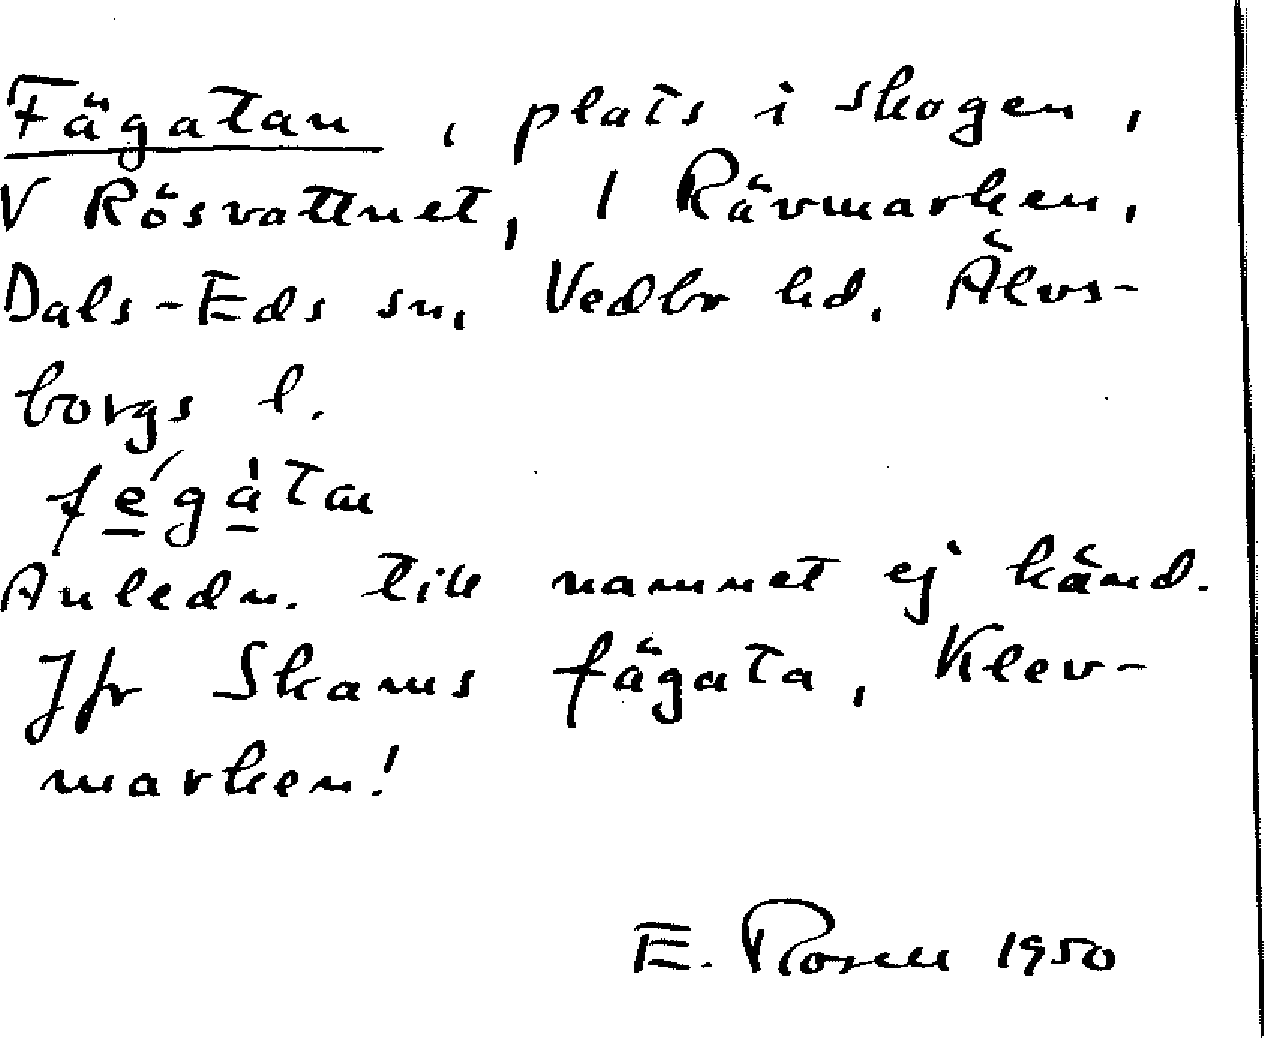 Fägatan, plats i skogen,
V Rösvattnet, 1 Rävmarken,
Dals-Eds sn, Vedbo hd, Älvs-
borgs l.
fégàtan
Anledn. till namnet ej känd.
Jfr Skams fägata, Klev-
marken!
E. Rosell 1950